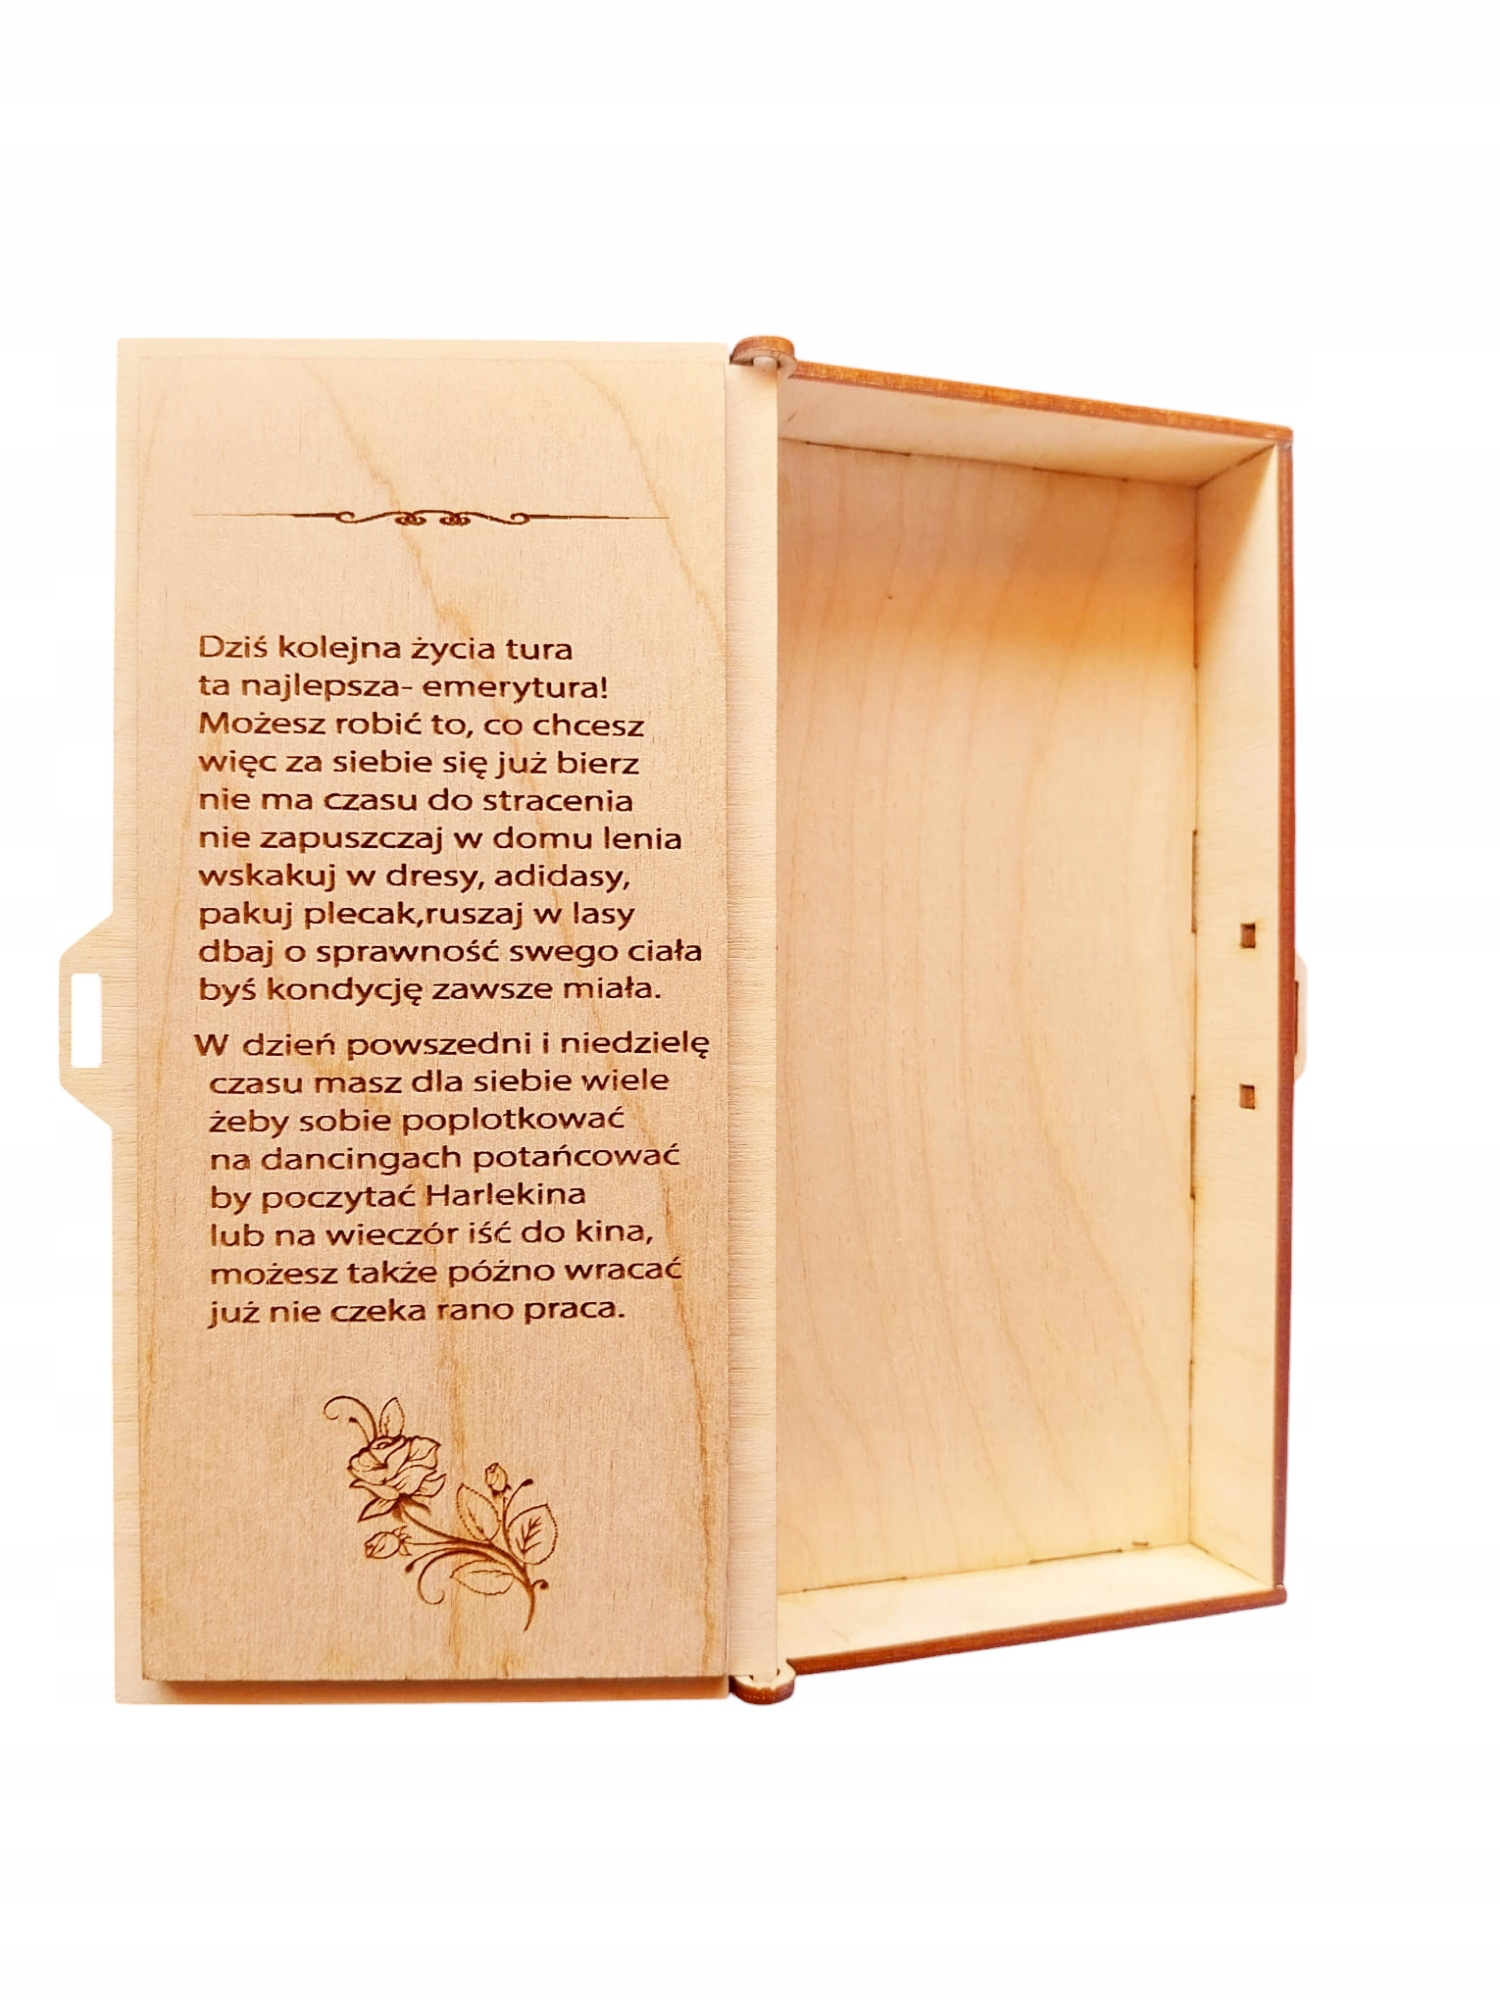 Dziś kolejna życia tura
ta najlepsza- emerytura!
Możesz robić to, co chcesz
więc za siebie się już bierz
nie ma czasu do stracenia
nie zapuszczaj w domu lenia
wskakuj w dresy, adidasy,
pakuj plecak,ruszaj w lasy
dbaj o sprawność swego ciała
byś kondycję zawsze miała.
W dzień powszedni i niedzielę
czasu masz dla siebie wiele
żeby sobie poplotkować
na dancingach potańcować
by poczytać Harlekina
lub na wieczór iść do kina,
możesz także póżno wracać
już nie czeka rano praca.